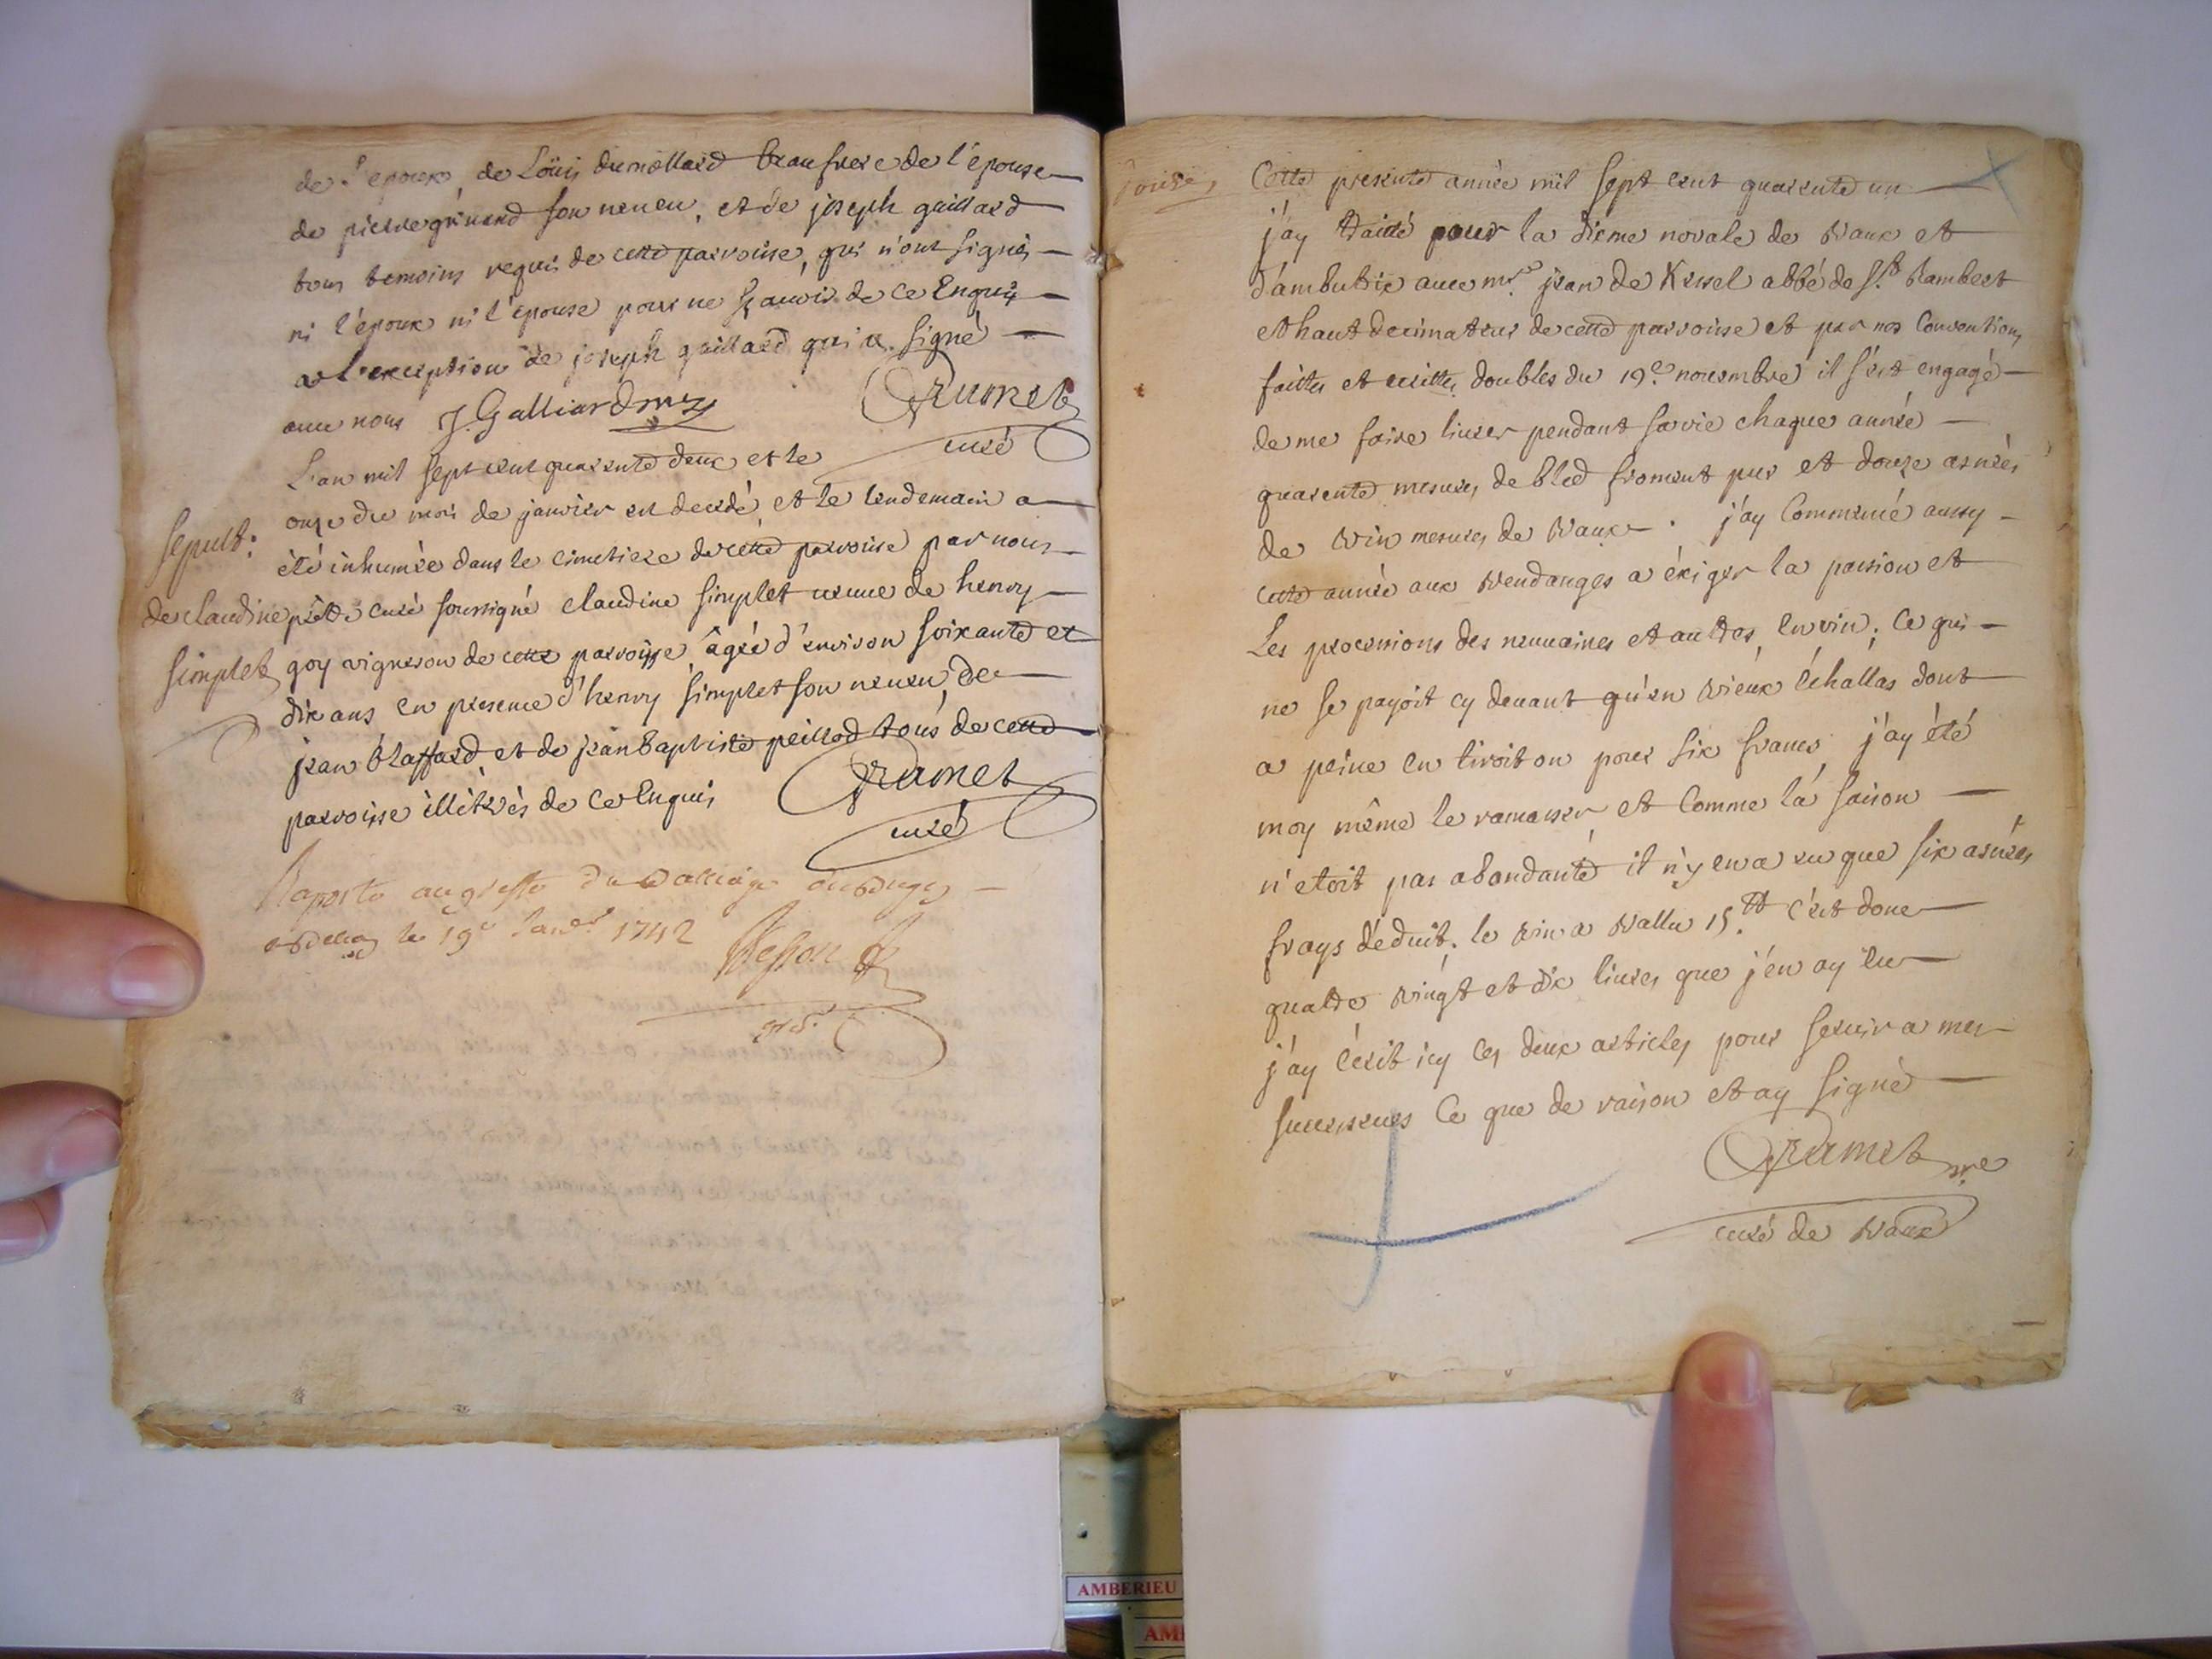 de l'epoux, de Loüis dumollard beaufrere de l'epouse
de pierre grinand son neveu, et de joseph gaillard
tous temoins requis de cette parroisse, qui n'ont signés
ni l'époux ni l'épouse pour ne sçauoir de ce Enquis
a l'exception de joseph gaillard qui a signé
auec nous J. Galliard
Grumet
curé
L'an mil sept cent quarente deux et le
onze du mois de janvier est decedé, et le lendemain a
été inhumée dans le cimetiere de cette parroise par nous
prêtre curé soussigné claudine simplet veuue de henry
goy vigneron de cette parroisse âgée d'environ soixante et
dix ans en presence d'henry simplet son neueu, de
jean blaffard, et de jean baptiste peillod tous de cette
parroisse illitérés de ce Enquis
Sepult:
de claudine
simplet
Grumet
curé
Raporté au greffe du Balliage de Bugey
a Belley le 19e Janer 1742
Besson
Cette presente année mil sept cent quarente un
j'ay traité pour la dixme novale de Vaux et
d'ambutrix auec mr. jean de Kessel abbé de St. Rambert
et haut decimateur de cette parroisse et par nos Conventions
faittes et écrittes doubles du 19e. nouembre il s'est engagé
de me faire liurer pendant sa vie chaque année
quarente mesures de bled froment pur et douze asnées
de vin mesures de Vaux. j'ay Commencé aussy
cette année aux vendanges a éxiger la passion et
Les processions des neuuaines et autres, en vin; Ce qui
ne se payoit cy deuant qu'en vieux échallas dont
a peine en tiroit on pour six francs j'ay été
moy même le ramasser et Comme la saison
n'etoit pas abondante il n'y en a eu que six asnées
frays déduit. le vin a vallu 15.tt C'est donc
quatre vingt et dix liures que j'en ay eu
j'ay écrit icy ces deux articles pour seruir a mes
successeurs Ce que de raison et ay signé
Grumet
curé de Vaux
AMBERIEU
AM